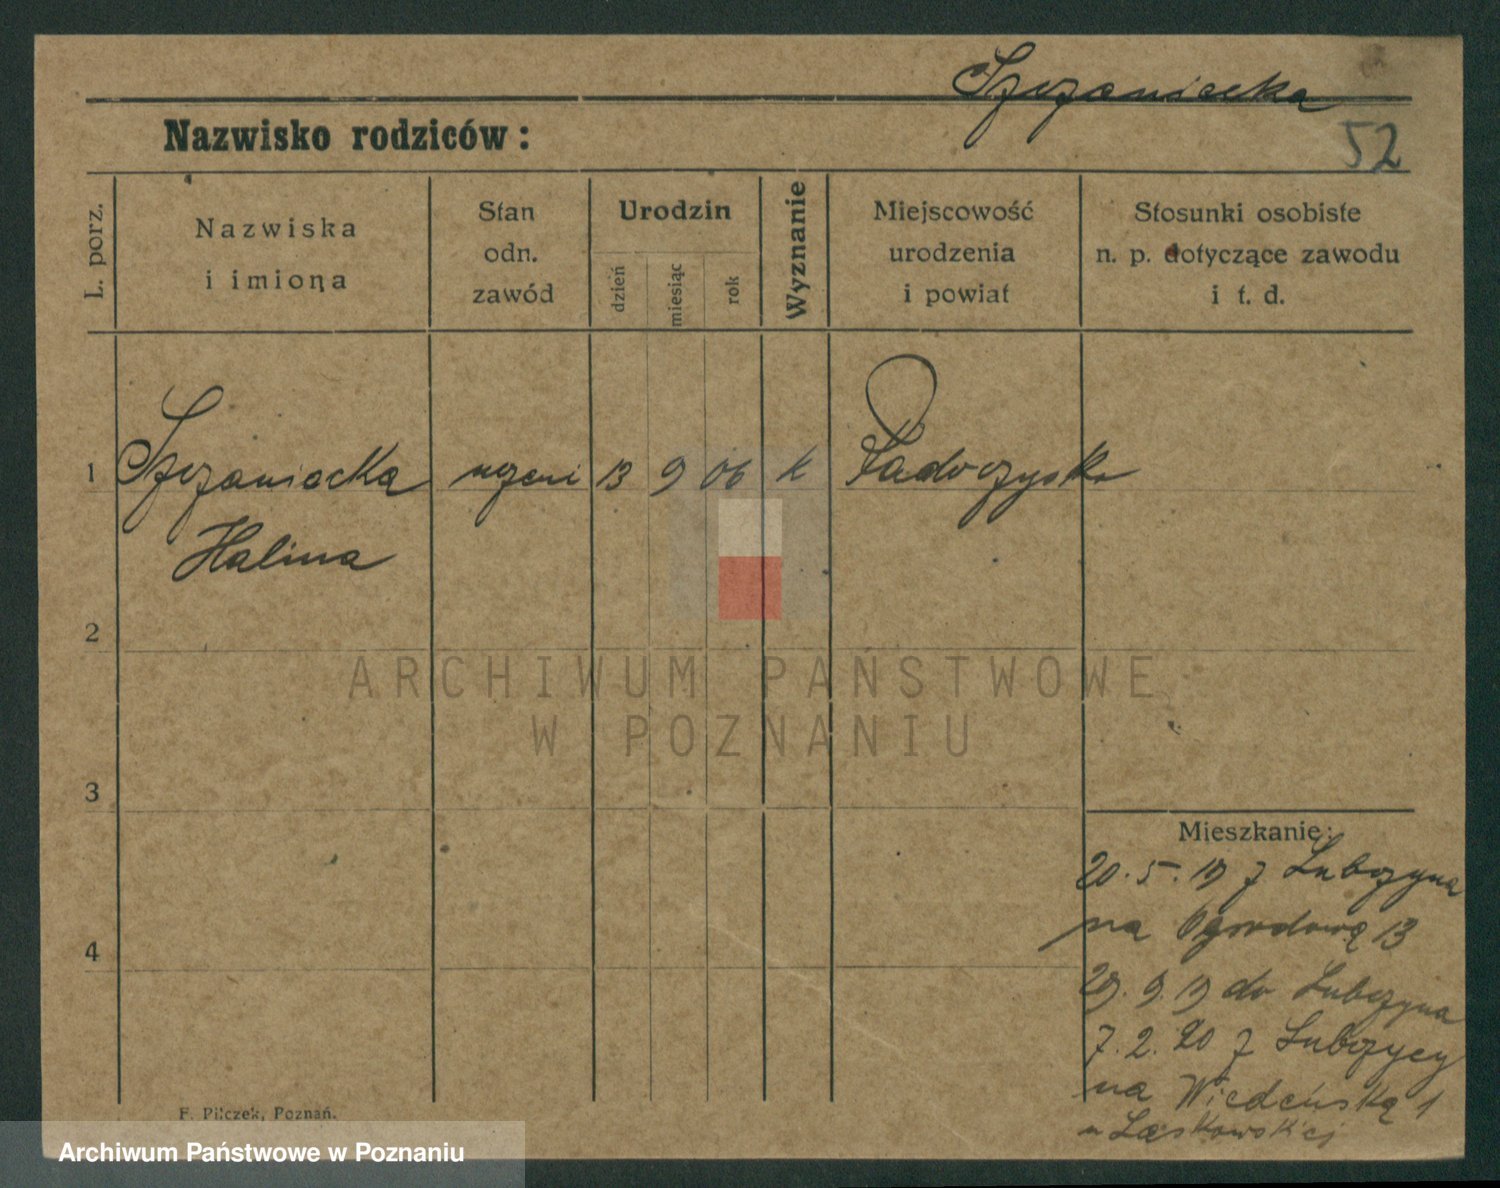 Szczaniecka
Nazwisko rodziców:
52
L. porz.
Nazwiska
i imiona
Stan
odn.
zawód
Urodzin
dzień
miesiąc
rok
Wyznanie
Miejscowość
urodzenia
i powiat
Stosunki osobiste
n. p. dotyczące zawodu
i t. d.
1 Szczaniecka uczeni 13 9 06 k
Halina
2
3
4
ARCHIWUM PAŃSTWOWE
W POZNANIU
Mieszkanie:
20.5.19 z
na Ogrodową 13
29.9.19 do
7.2.20 z
na Wiedeńską 1
u Laskowskiej
F. Pilczek, Poznań.
Archiwum Państwowe w Poznaniu